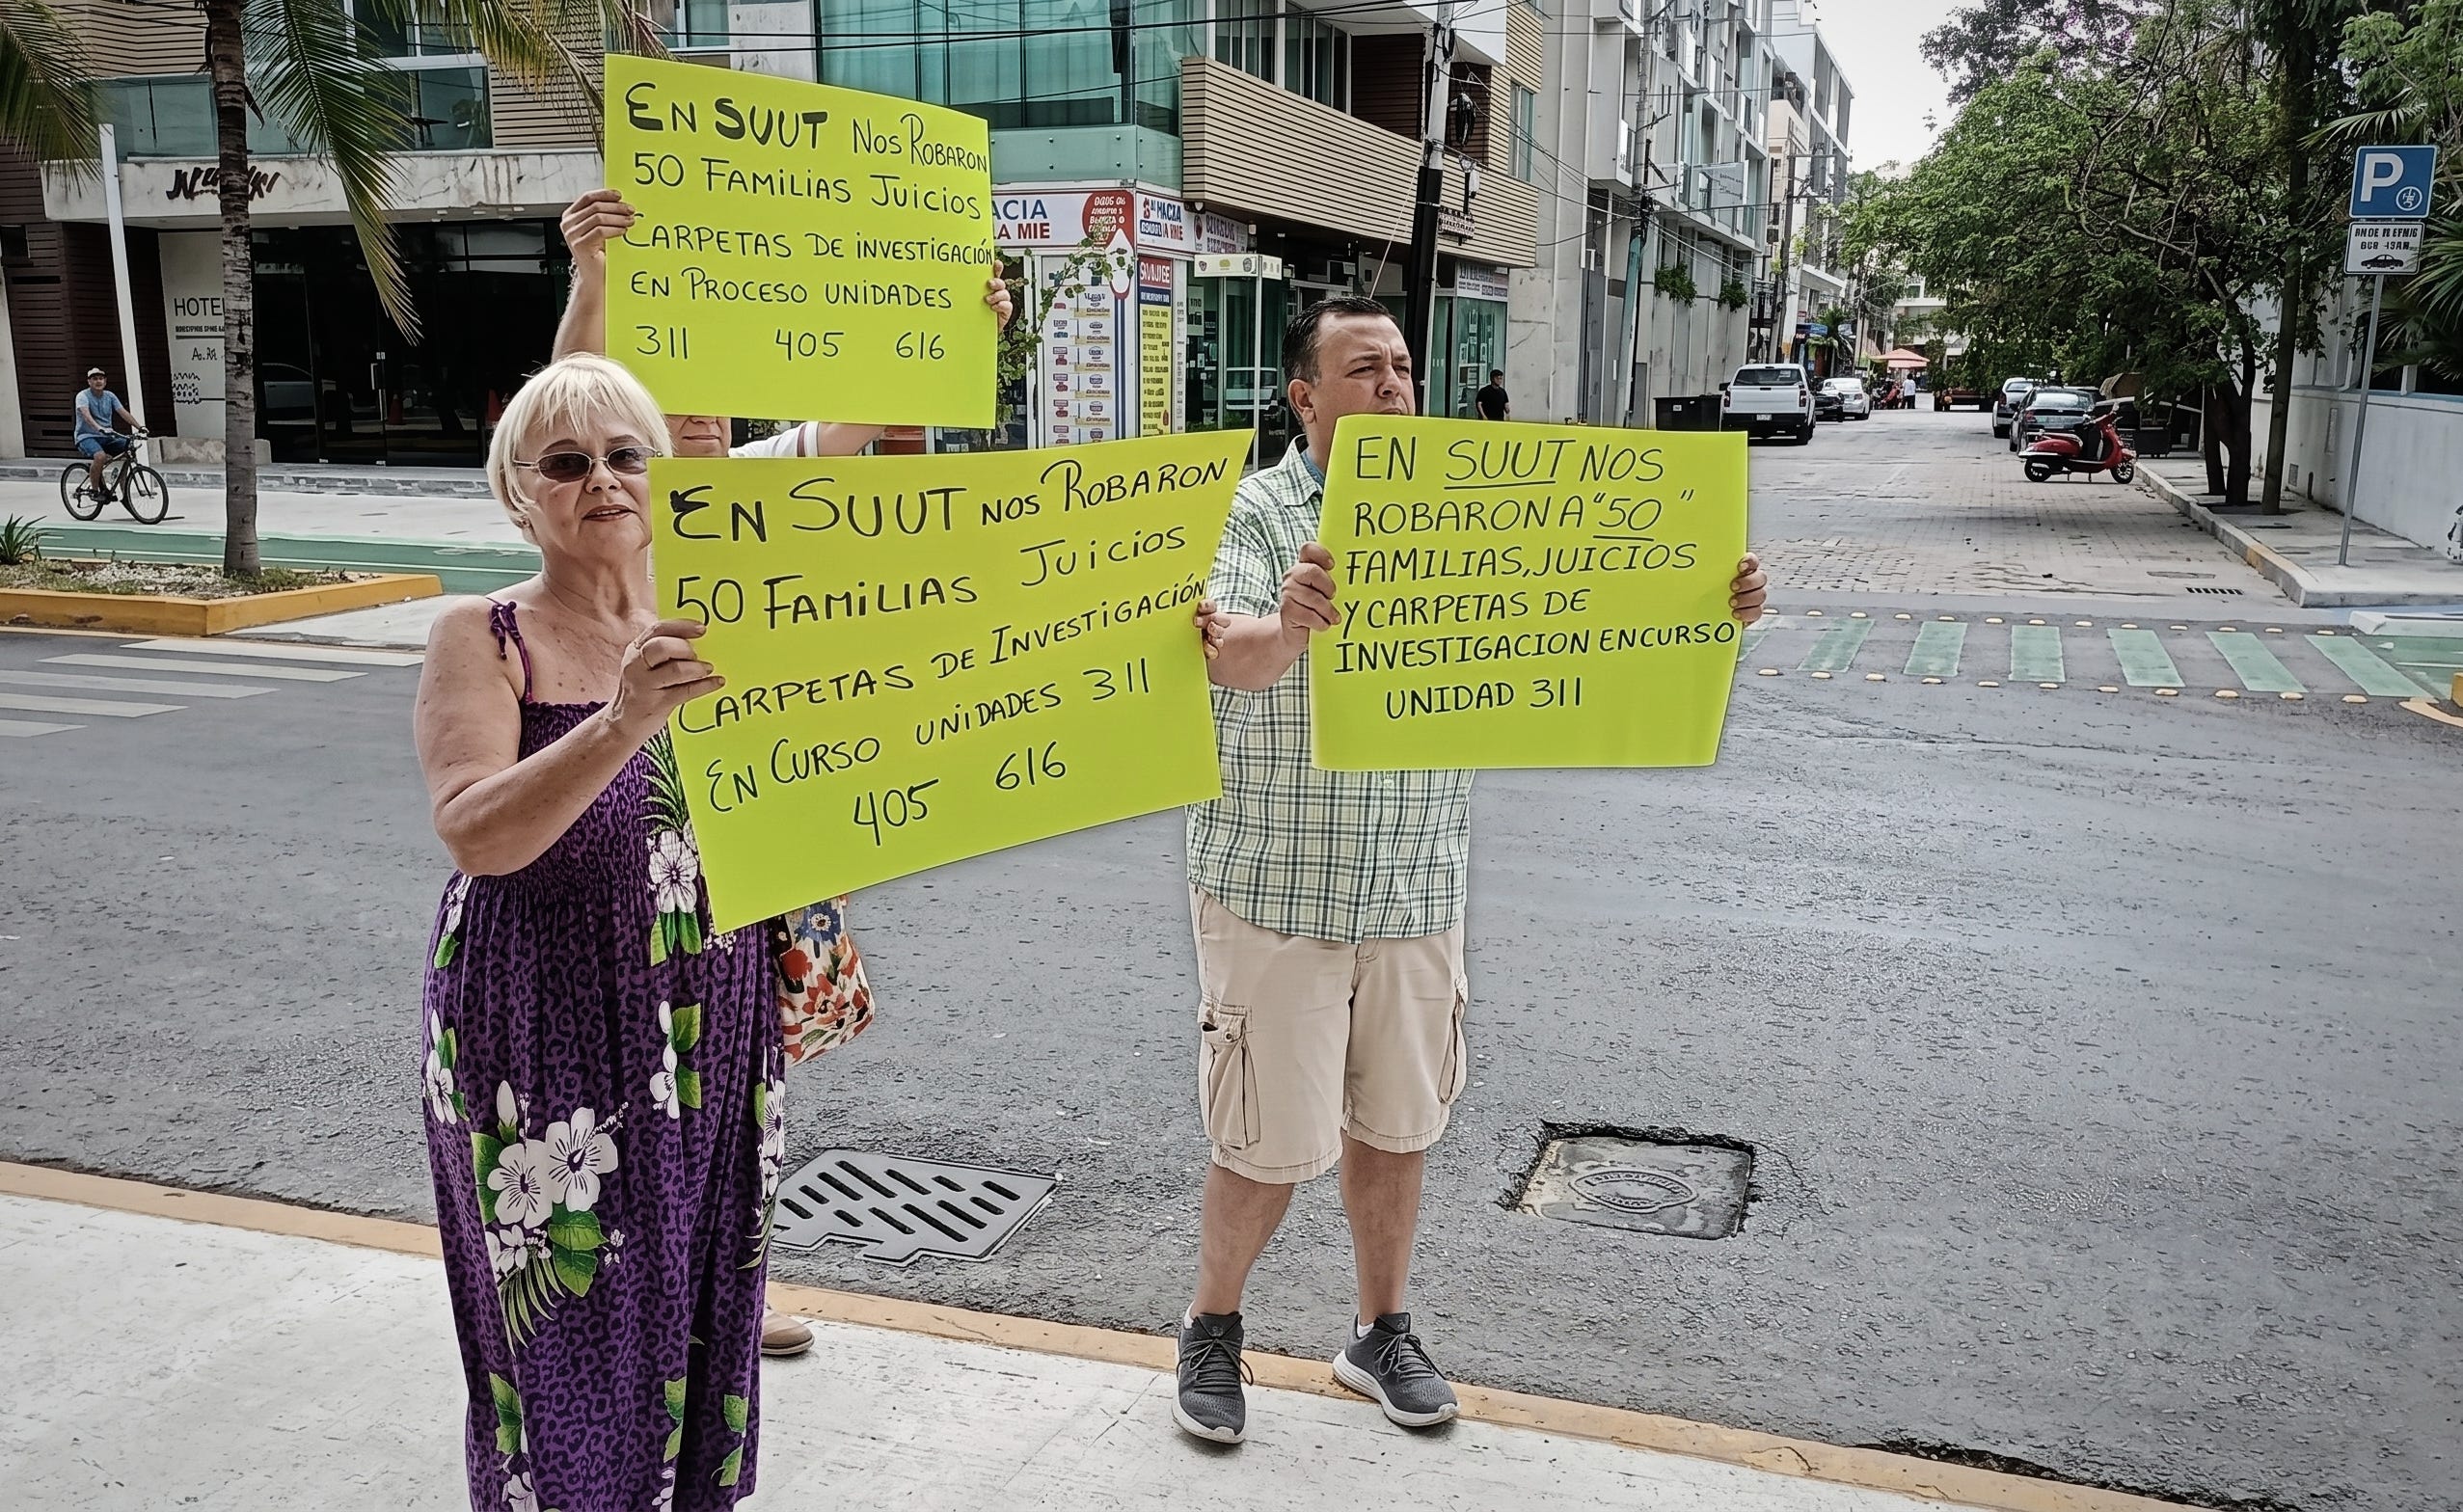 EN SUUT NOS ROBARON
50 FAMILIAS JUICIOS
CARPETAS DE INVESTIGACIÓN
EN PROCESO UNIDADES
311 405 616
EN SUUT NOS ROBARON
50 FAMILIAS JUICIOS
CARPETAS DE INVESTIGACIÓN
EN CURSO UNIDADES 311
405 616
EN SUUT NOS
ROBARON A "50"
FAMILIAS, JUICIOS
Y CARPETAS DE
INVESTIGACION EN CURSO
UNIDAD 311
HOTEL
ACIA
LA MIE
P